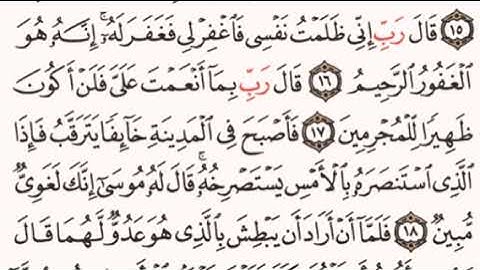 ١٥ قَالَ رَبِّ إِنِّي ظَلَمْتُ نَفْسِي فَاغْفِرْ لِي فَغَفَرَ لَهُۥٓ ۚ إِنَّهُۥ هُوَ
الْغَفُورُ الرَّحِيمُ ١٦ قَالَ رَبِّ بِمَآ أَنْعَمْتَ عَلَيَّ فَلَنْ أَكُونَ
ظَهِيرًا لِّلْمُجْرِمِينَ ١٧ فَأَصْبَحَ فِي الْمَدِينَةِ خَآئِفًا يَتَرَقَّبُ فَإِذَا
الَّذِي اسْتَنصَرَهُۥ بِالْأَمْسِ يَسْتَصْرِخُهُۥ ۚ قَالَ لَهُۥ مُوسَىٰٓ إِنَّكَ لَغَوِيٌّ
مُّبِينٌ ١٨ فَلَمَّآ أَنْ أَرَادَ أَن يَبْطِشَ بِالَّذِي هُوَ عَدُوٌّ لَّهُمَا قَالَ